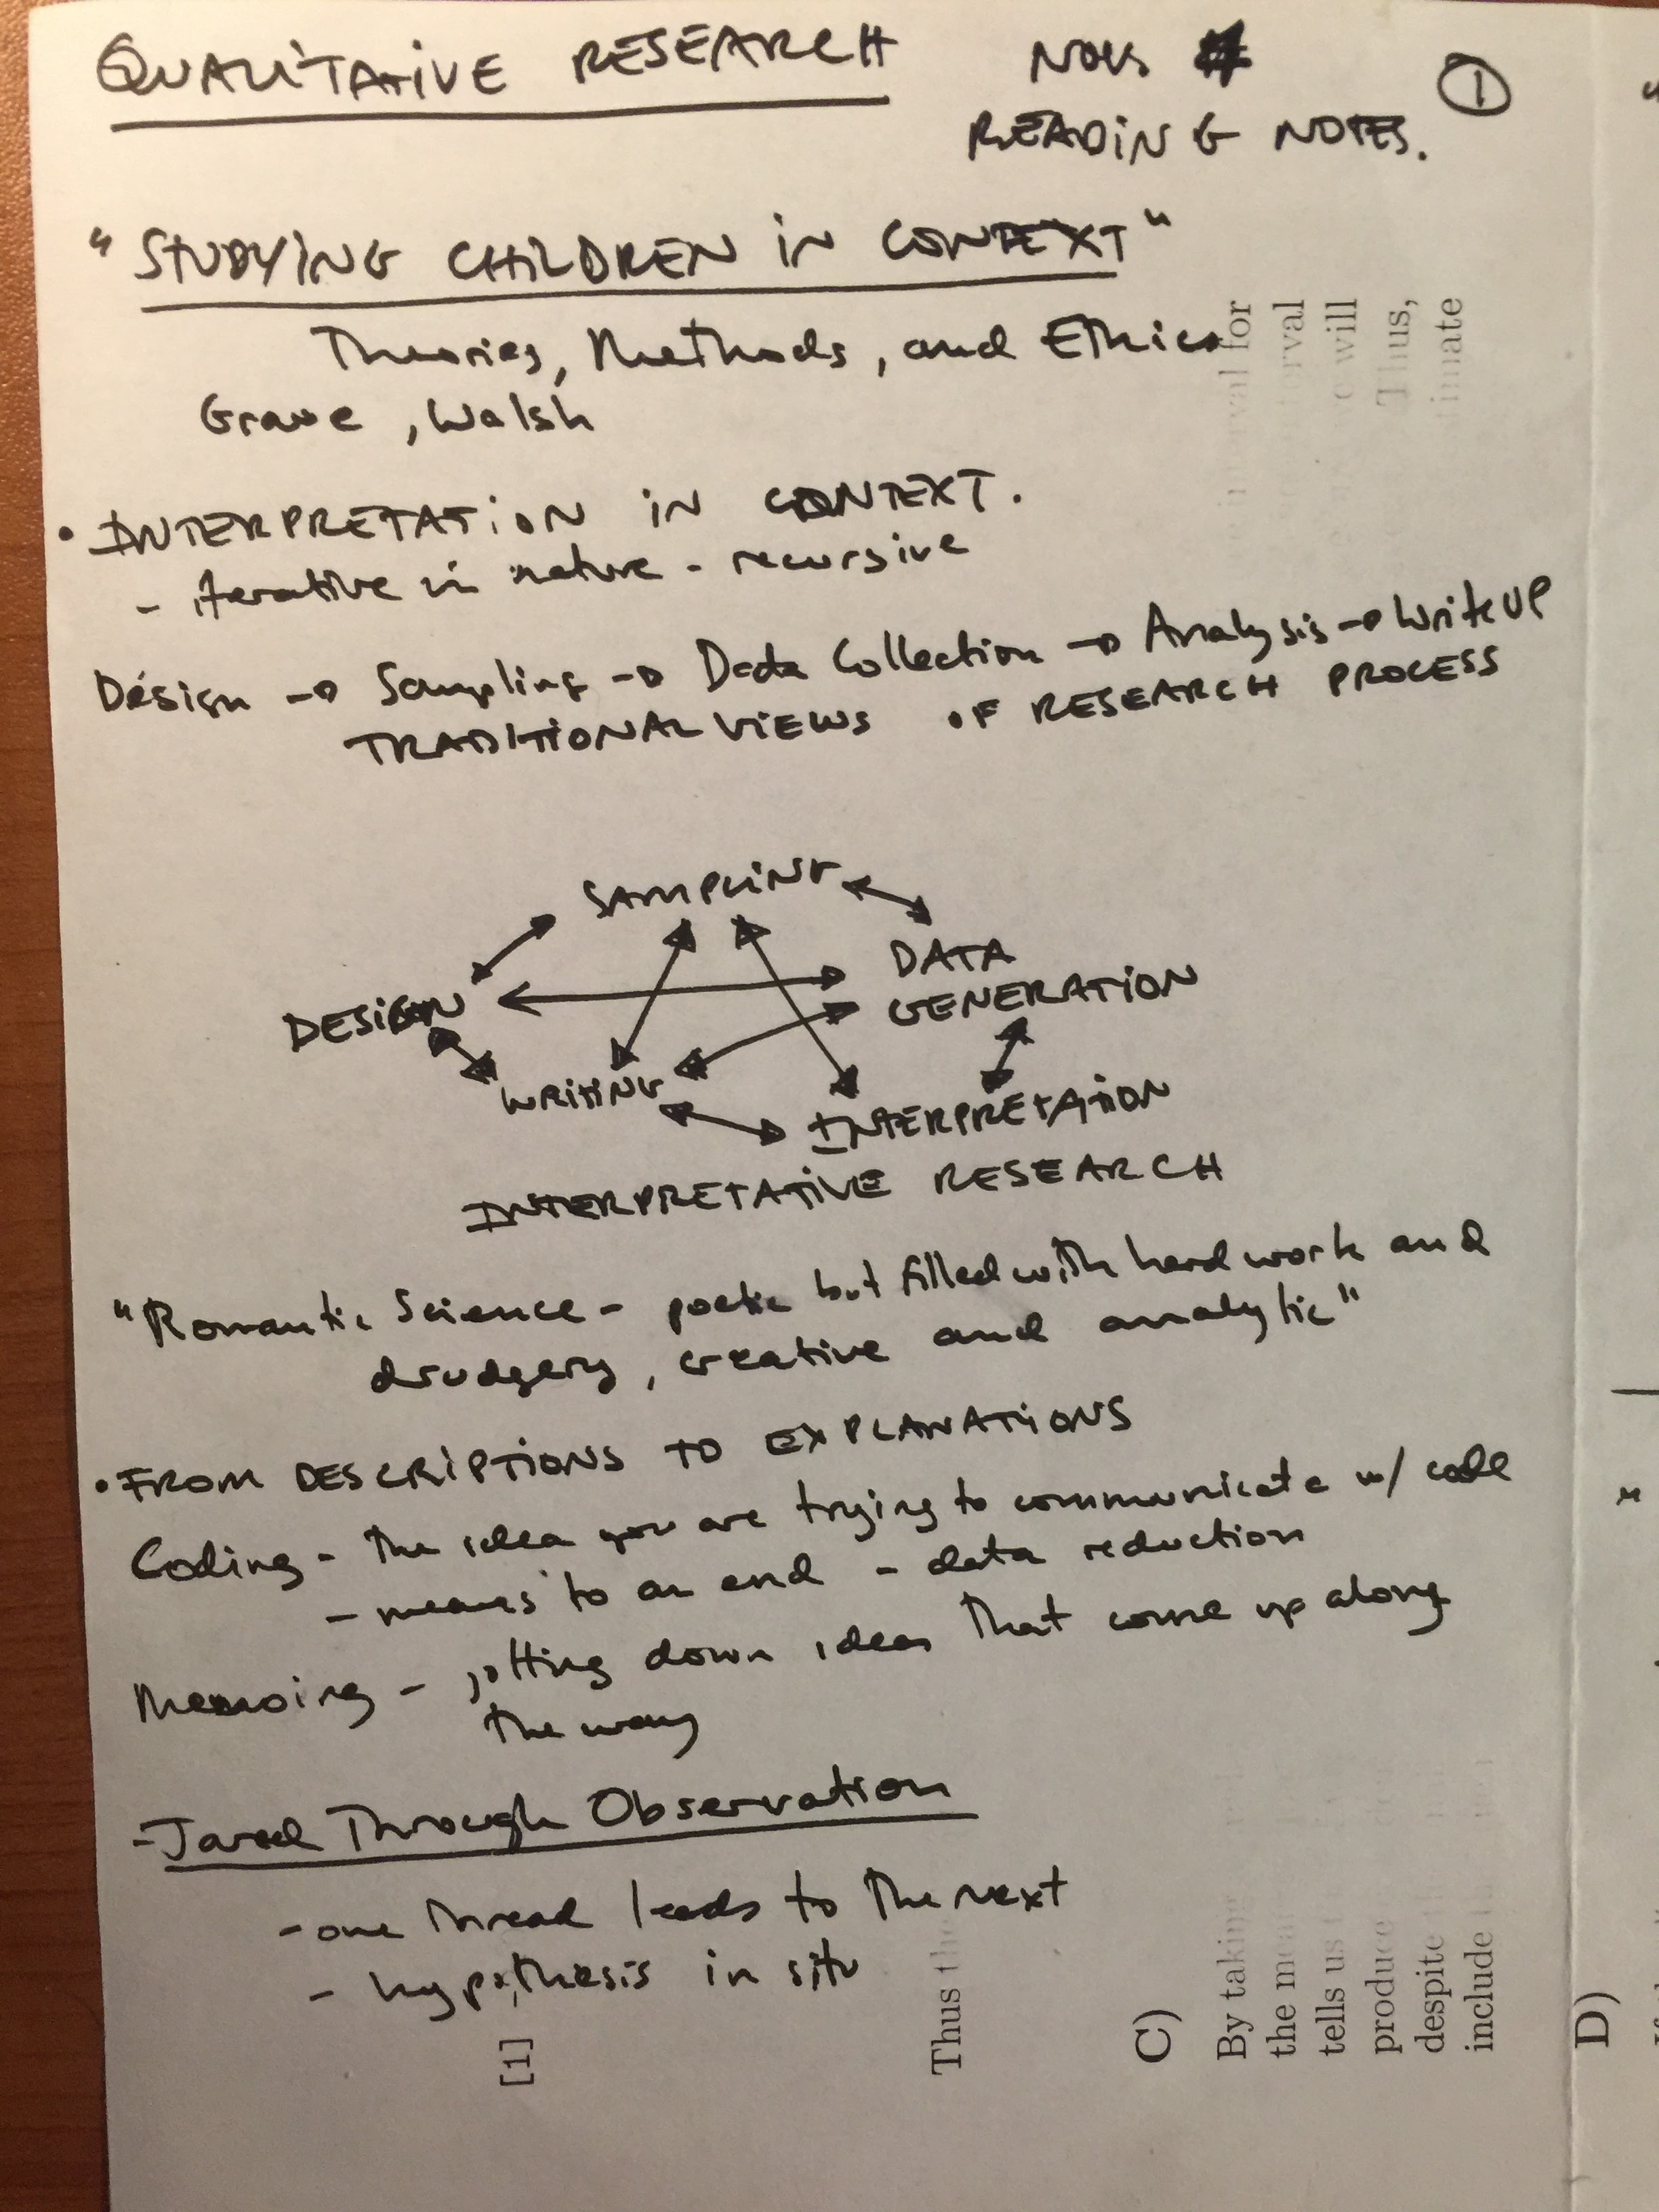 QUALITATIVE RESEARCH
READING NOTES.
1
"STUDYING CHILDREN IN CONTEXT"
Theories, Methods, and Ethics
Graue, Walsh
• INTERPRETATION IN CONTEXT.
- iterative in nature - recursive
Design → Sampling → Data Collection → Analysis → Write UP
TRADITIONAL VIEWS OF RESEARCH PROCESS
SAMPLING
DATA
GENERATION
DESIGN
WRITING
INTERPRETATION
INTERPRETATIVE RESEARCH
"Romantic Science - poetic but filled with hard work and
drudgery, creative and analytic"
• FROM DESCRIPTIONS TO EXPLANATIONS
Coding - the idea you are trying to communicate w/ code
- means to an end - data reduction
Memoing - jotting down ideas that come up along
the way
- Jared Through Observation
- one thread leads to the next
- hypothesis in situ
[1]
Thus
C)
By taking
the
tells us
produce
despite
include
D)
for
will
Thus,